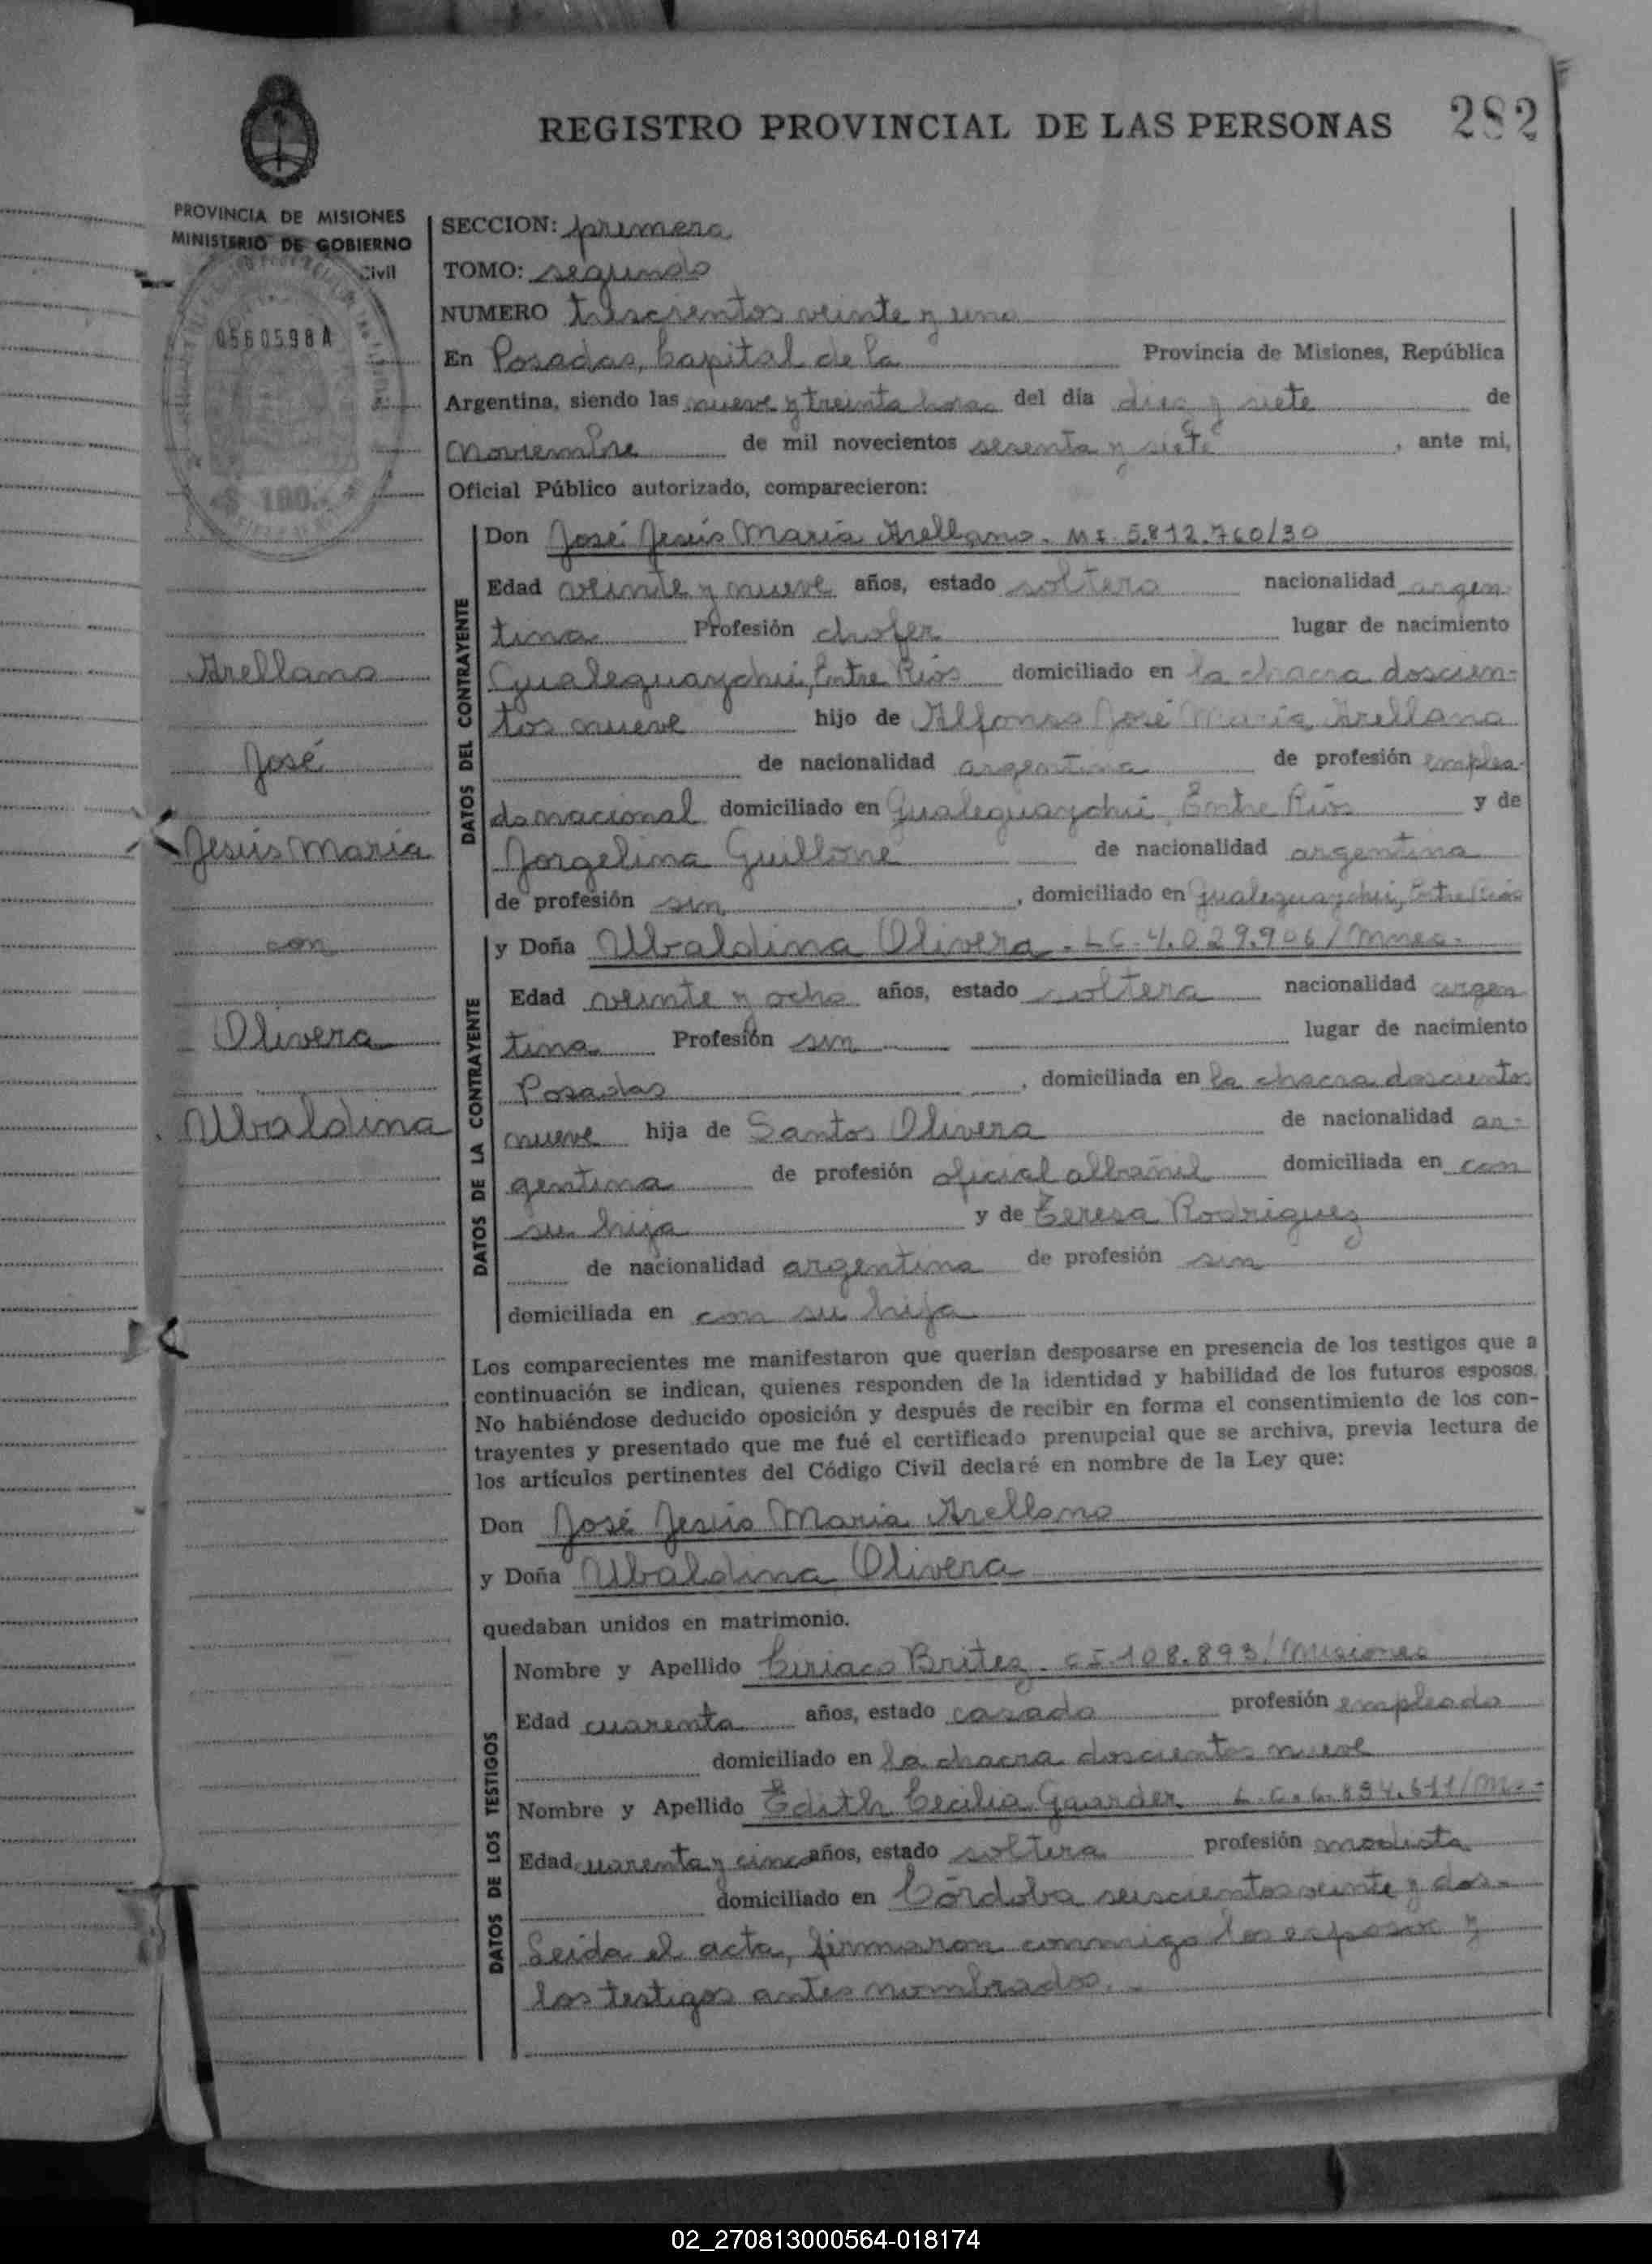 REGISTRO PROVINCIAL DE LAS PERSONAS 282
PROVINCIA DE MISIONES
MINISTERIO DE GOBIERNO
Civil
0560598A
$ 100.-
Arellano
José
Jesús María
con
Olivera
Ubaldina
SECCION: primera
TOMO: segundo
NUMERO trescientos veinte y uno
En Posadas, Capital de la Provincia de Misiones, República
Argentina, siendo las nueve y treinta horas del día diez y siete de
noviembre de mil novecientos sesenta y siete, ante mi,
Oficial Público autorizado, comparecieron:
DATOS DEL CONTRAYENTE
Don José Jesús María Arellano. MI. 5.812.760/30
Edad veinte y nueve años, estado soltero nacionalidad argen-
tina Profesión chofer lugar de nacimiento
Gualeguaychú, Entre Ríos domiciliado en la chacra doscien-
tos nueve hijo de Alfonso José María Arellano
de nacionalidad argentina de profesión emplea-
do nacional domiciliado en Gualeguaychú, Entre Ríos y de
Jorgelina Guillone de nacionalidad argentina
de profesión sin, domiciliado en Gualeguaychú, Entre Ríos
DATOS DE LA CONTRAYENTE
y Doña Ubaldina Olivera. LC. 4.029.906/Mnes.
Edad veinte y ocho años, estado soltera nacionalidad argen
tina Profesión sin lugar de nacimiento
Posadas, domiciliada en la chacra doscientos
nueve hija de Santos Olivera de nacionalidad ar-
gentina de profesión oficial albañil domiciliada en con
su hija y de Teresa Rodriguez
de nacionalidad argentina de profesión sin
domiciliada en con su hija
Los comparecientes me manifestaron que querían desposarse en presencia de los testigos que a
continuación se indican, quienes responden de la identidad y habilidad de los futuros esposos.
No habiéndose deducido oposición y después de recibir en forma el consentimiento de los con-
trayentes y presentado que me fué el certificado prenupcial que se archiva, previa lectura de
los artículos pertinentes del Código Civil declaré en nombre de la Ley que:
Don José Jesús María Arellano
y Doña Ubaldina Olivera
quedaban unidos en matrimonio.
DATOS DE LOS TESTIGOS
Nombre y Apellido Ciriaco Britez. CI. 108.893/Misiones
Edad cuarenta años, estado casado profesión empleado
domiciliado en la chacra doscientos nueve
Nombre y Apellido Edith Cecilia Gaarder L.C. 6.894.611/M.-
Edad cuarenta y cinco años, estado soltera profesión modista
domiciliado en Córdoba seiscientos veinte y dos.-
Leida el acta, firmaron conmigo los esposos y
los testigos antes nombrados.-
02_270813000564-018174